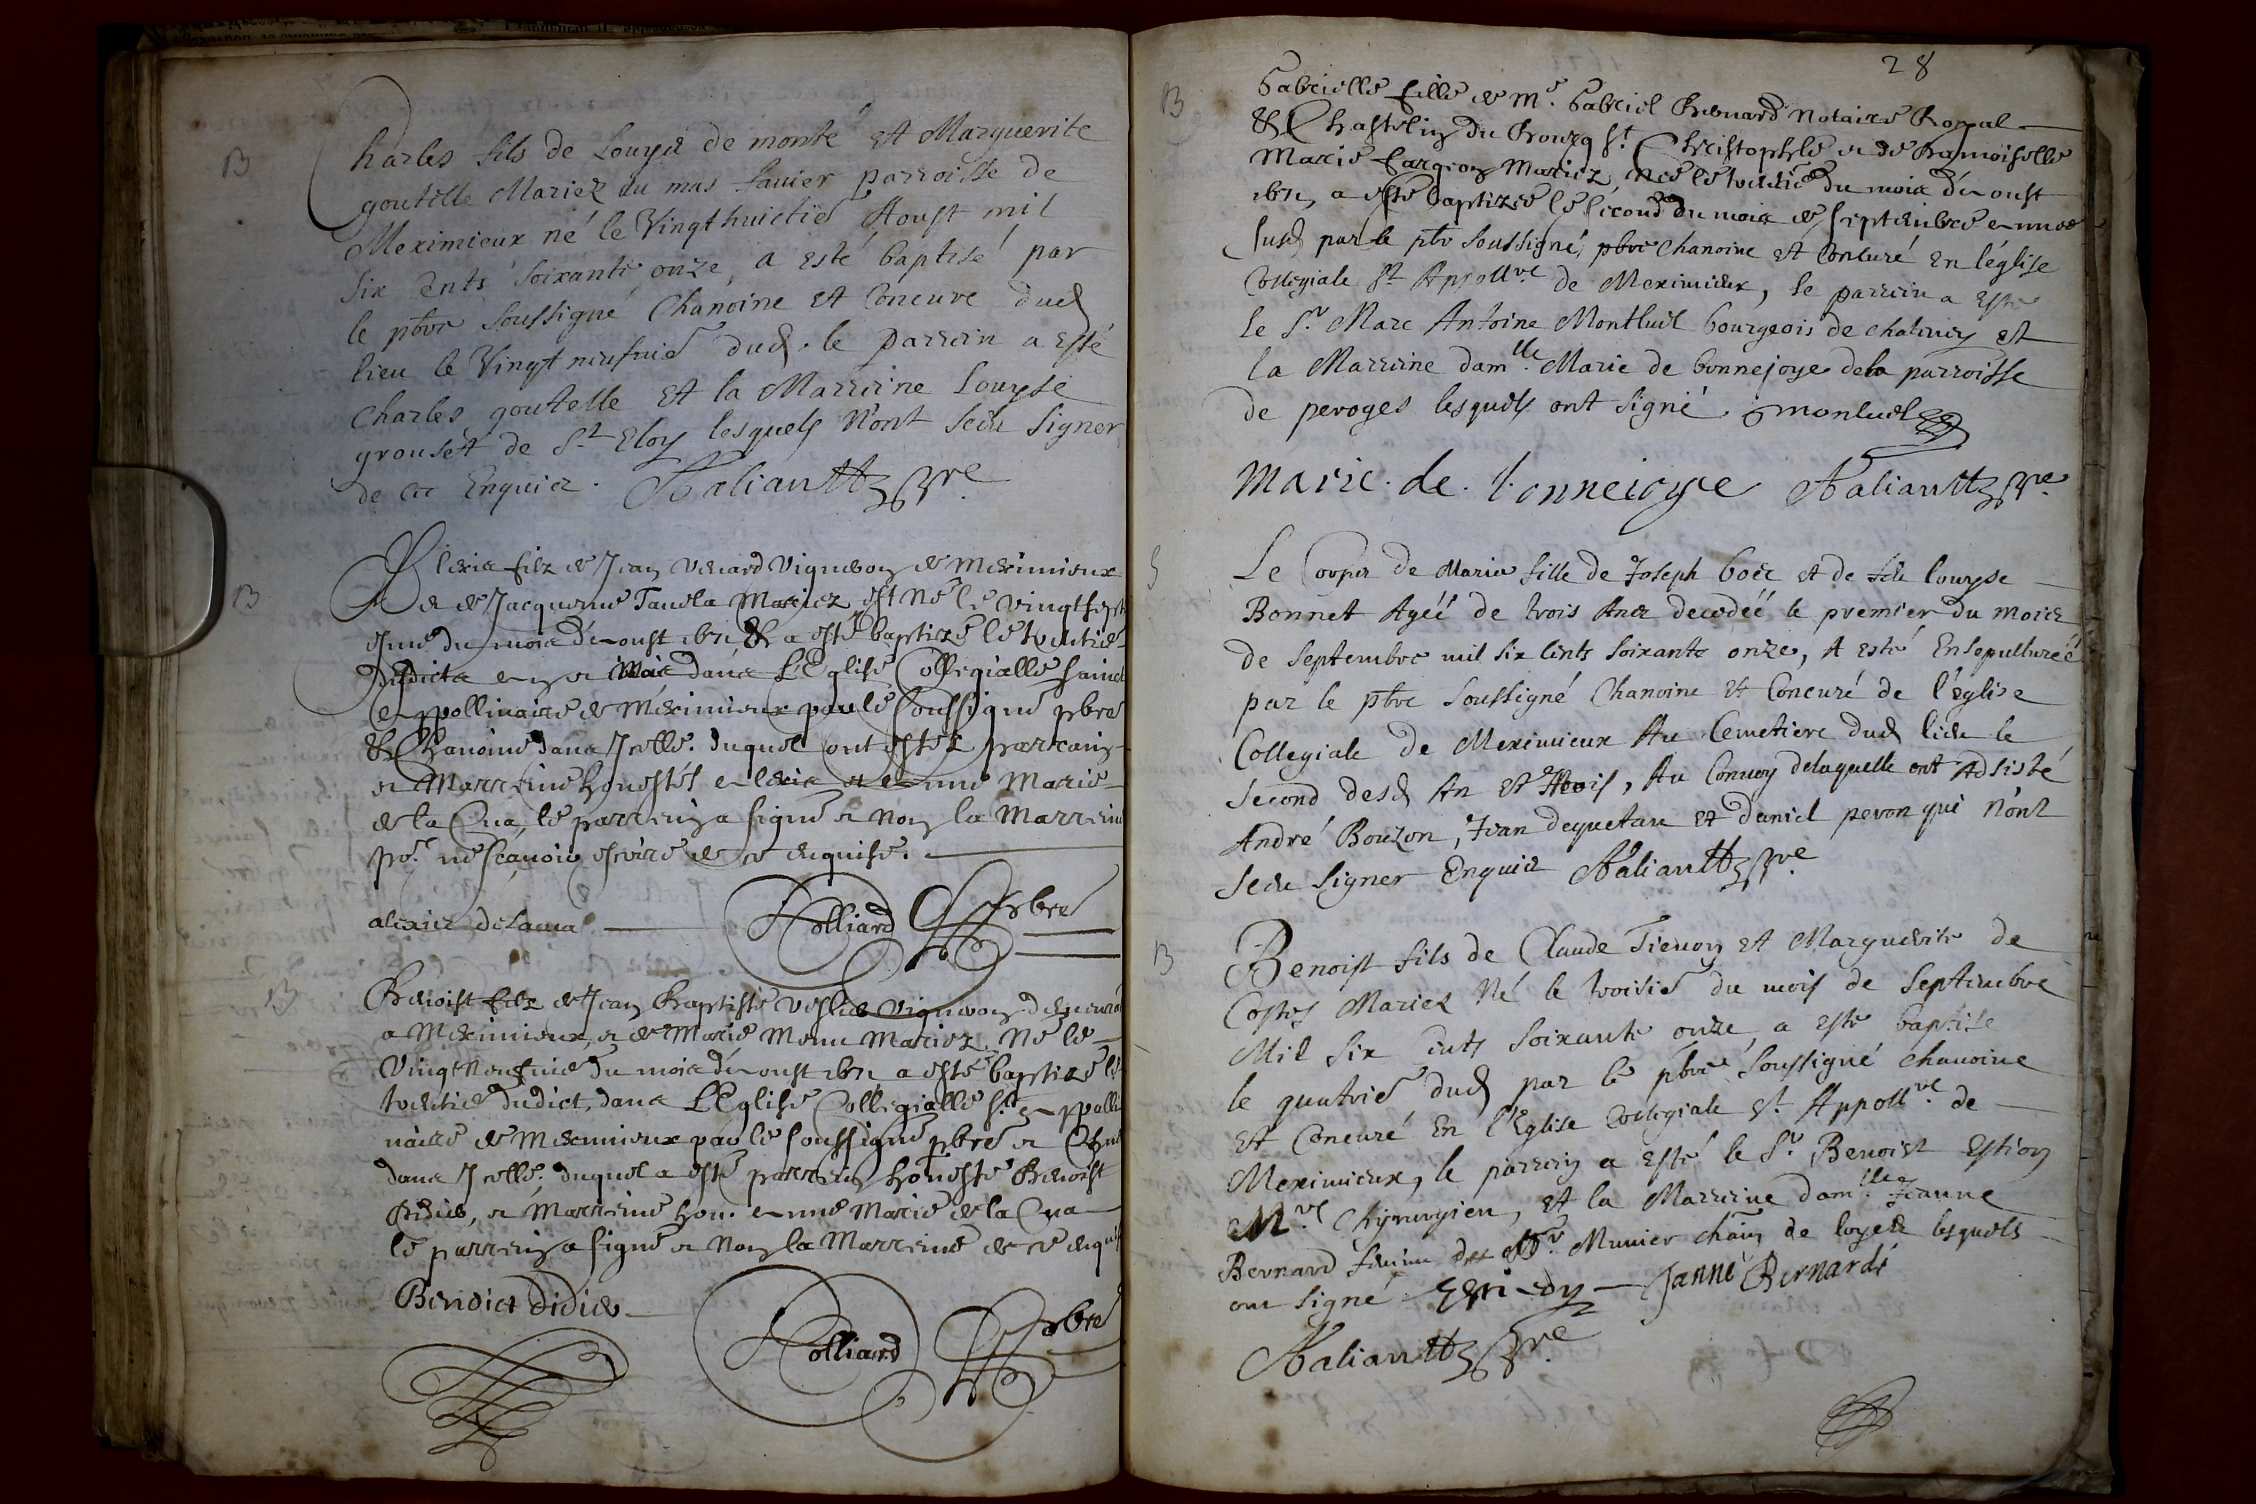 B
Charles fils de Louys de monté et Marguerite
goutelle Mariez du mas Janier parroisse de
Meximieux né le Vingthuictie Aoust mil
six cents soixante onze, a esté baptisé par
le pbre soussigné Chanoine et Concuré dud
lieu le Vingt neufuie dud. le parrein a esté
Charles goutelle et la Marreine Louyse
grouset de St Eloy lesquels n'ont sceu signer
de ce Enquis.
B
Alexis filz de Jean Vigneron de Meximieux
& de Jacqueme Mariez est né le vingtsept
esme du mois d'Aoust 1671 & a esté baptizé le trentie
dudict an et mois dans L'Eglise Collegialle sainct
Appollinaire de Meximieux par le soussigné pbre
& Chanoine dans Icelle. duquel ont estez parrain
et Marreine honestes Alexis et Anne Marie
de la Cua, le parrein a signé et non la Marreine
por. ne sçauoir escrire de ce enquise.
alexis delacua Folliard pbre
B
Benoist filz de Jean Baptiste Vigneron demeurant
a Meximieux et de Marie Mariez Né le
Vingt Neufuie du mois d'Aoust 1671 a esté baptizé le
trentie dudict, dans L'Eglise Collegialle St. Appolli
naire de Meximieux par le soussigné pbre et Chne
dans Icelle. duquel a esté parrein honeste Benoist
Didier, et Marreine hon. Anne Marie de la Cua
le parrein a signé et non la Marreine de ce enquise
Benoict Didier Folliard pbre
28
B
Gabrielle fille de Me. Gabriel Bernard Notaire Royal
& Chastelin du Bourg St. Christophle et de Damoiselle
Marie Mariez Née le trentie du mois d'Aoust
1671, a esté baptizée le second du mois de septembre année
susd par le pbr soussigné, pbre chanoine et Concuré en l'église
Collegiale St Apollre. de Meximieux, le parrein a esté
le Sr. Marc Antoine Montluel bourgeois de et
la Marreine damlle. Marie de bonnejoye dela parroisse
de peroges lesquels ont signé. monluel
Marie. de. bonneioye
S
Le Corps de Marie fille de Joseph et de feue louyse
Bonnet Agéé de trois Ans decedéé le premier du mois
de septembre mil six cents soixante onze, A esté Ensepulturéé
par le pbre soussigné Chanoine et Concuré de l'église
Collegiale de Meximieux Au Cemetiere dud lieu le
second desd An et Mois, Au Convoy delaquelle ont Adsisté
André Bouzon, Jean dequetan et daniel peron qui n'ont
sceu signer Enquis
B
Benoist fils de Claude Tienon et Marguerite de
Costes Mariez Né le troisie du mois de septembre
Mil six cents soixante onze, a esté baptise
le quatrie dud par le pbre soussigné chanoine
et Concuré En l'Eglise Collegiale St. Appollre. de
Meximieux, le parrein a esté le Sr. Benoist Estion
Mre. Chyrurgien, et la Marreine damlle. Jeanne
Bernard femme de Sr. Munier chan de loyes lesquels
ont signé Janne Bernarde